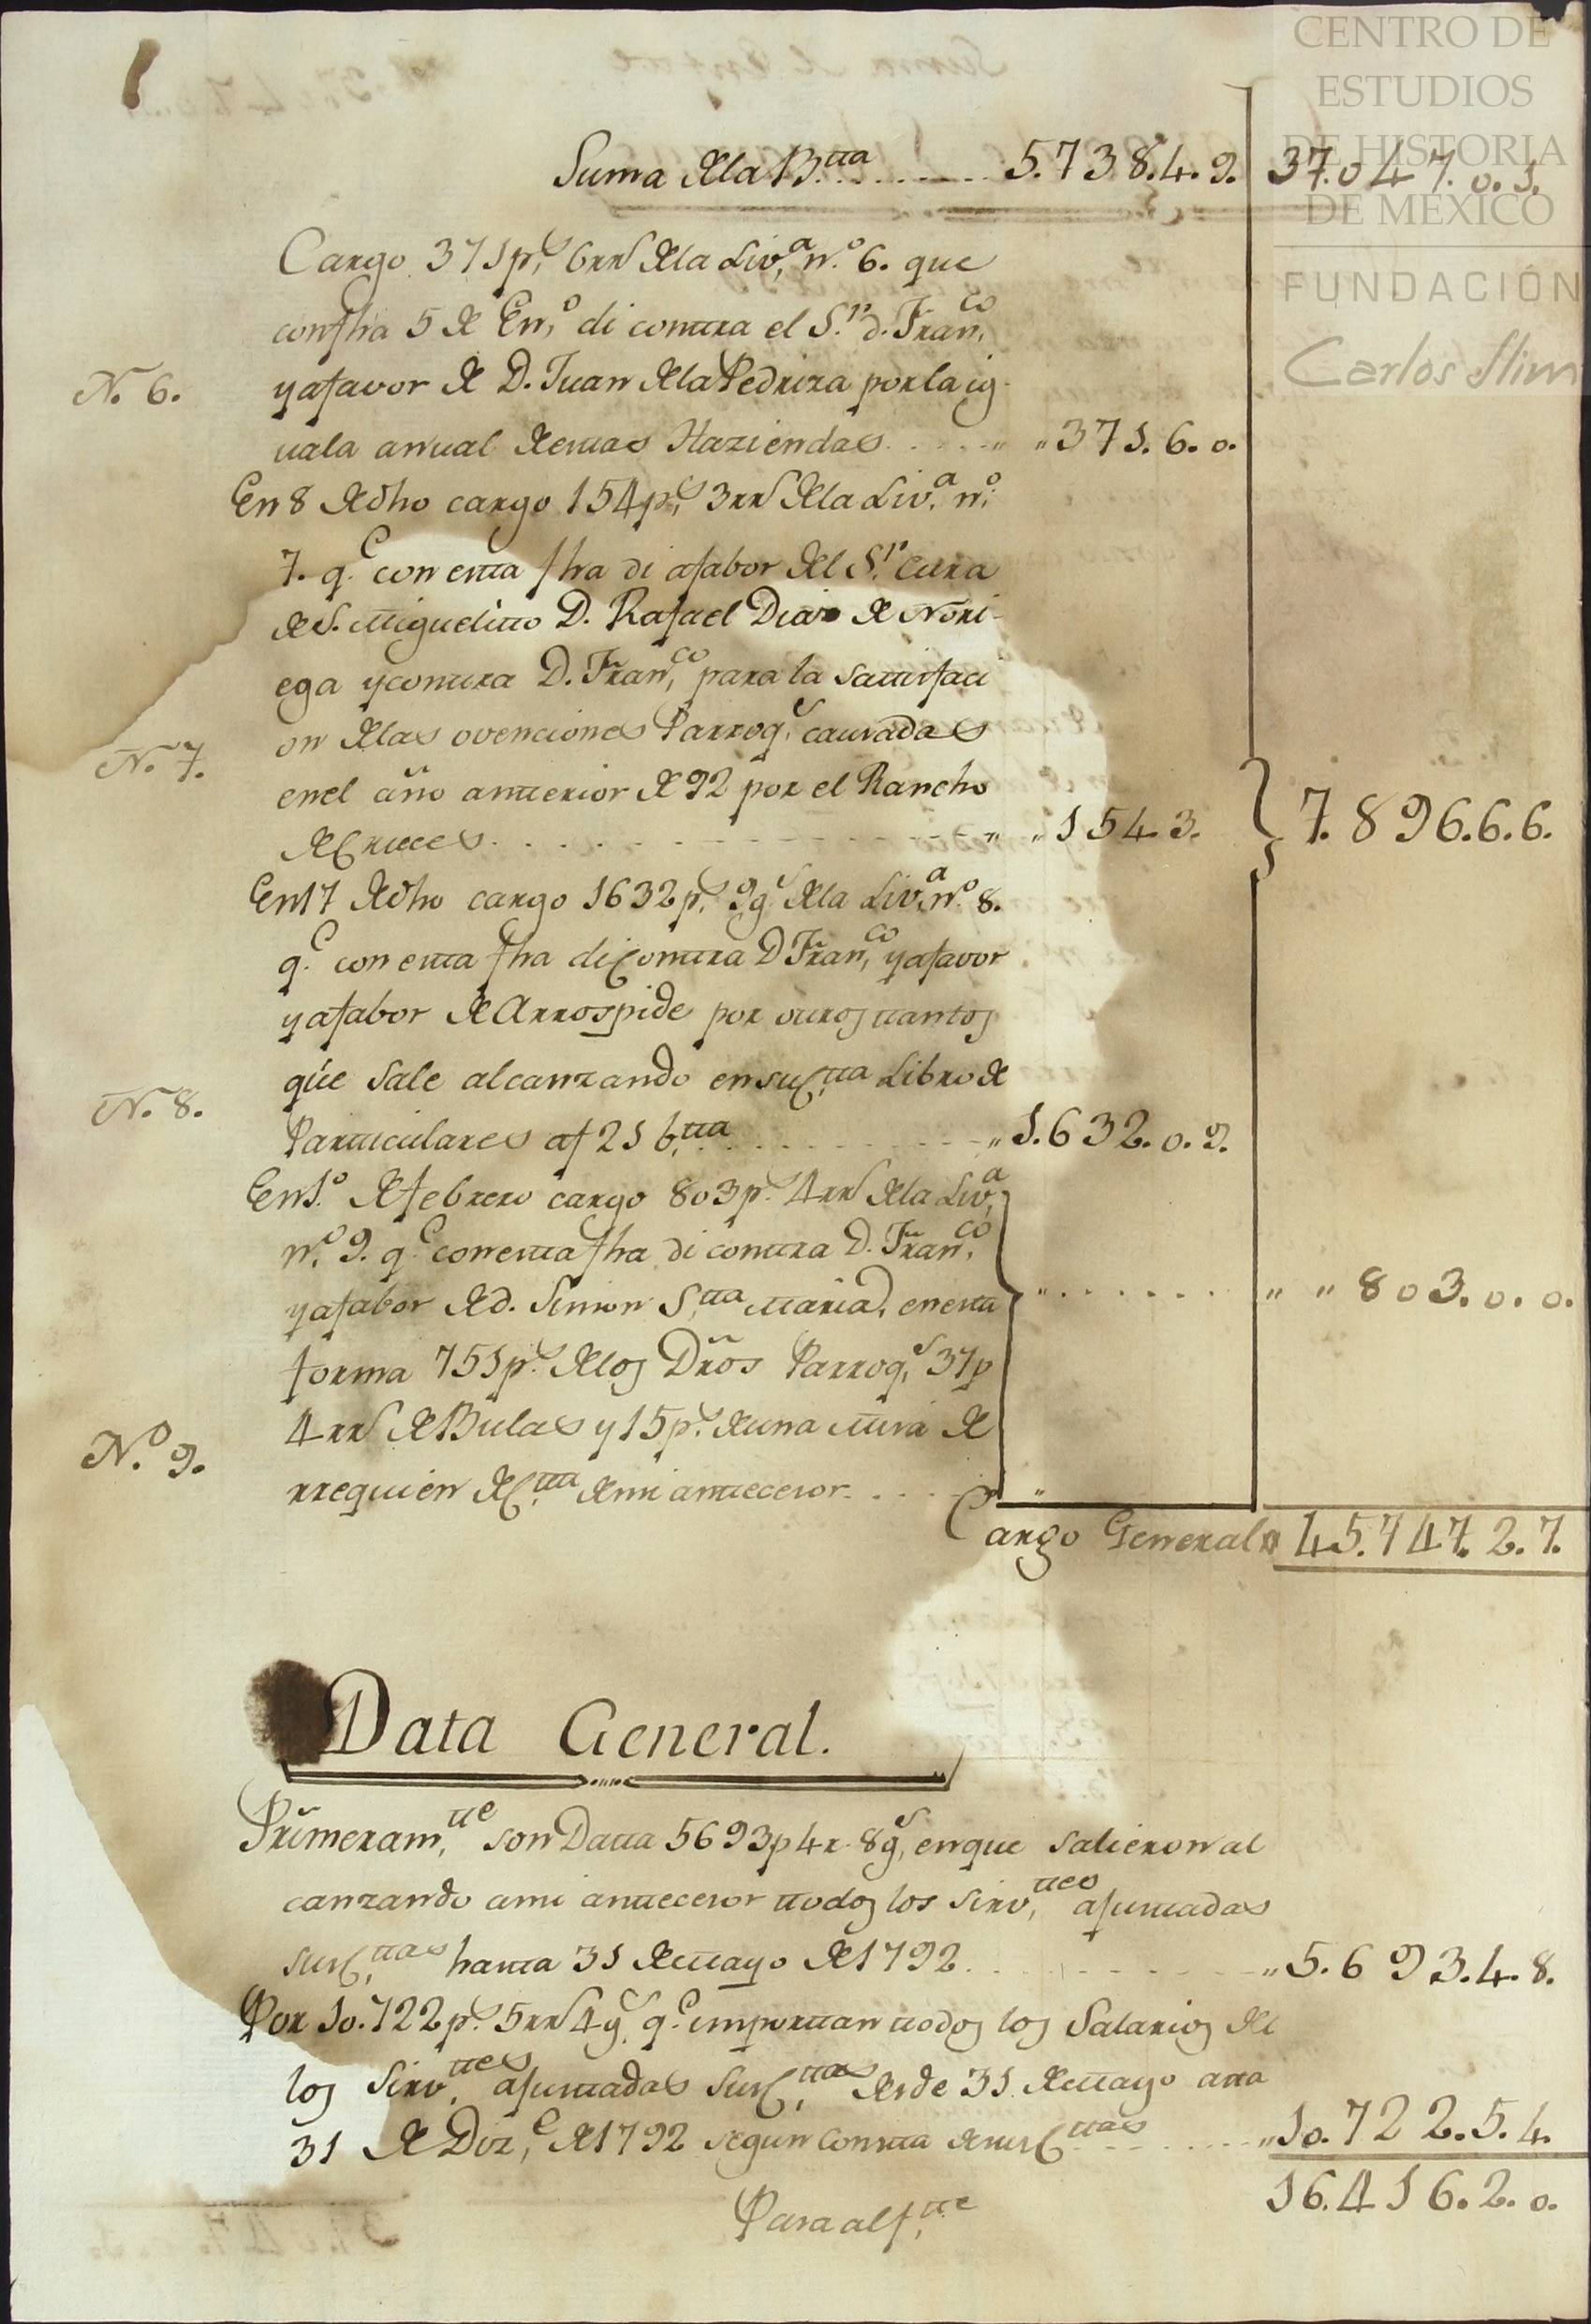 CENTRO DE
ESTUDIOS
DE HISTORIA
DE MÉXICO
FUNDACIÓN
Carlos Slim
Suma de la B.ta 5.738.4.9. 37.047.0.1.
Cargo 371 p.s 6 rr.s de la Liv.a n.o 6. que
con fha 5 de En.o di contra el S.r d. Fran.co
N. 6. y a favor de D. Juan de la Pedriza por la ig-
uala anual de estas Haziendas " 371.6.0.
En 8 de dho cargo 154 p.s 3 rr.s de la Liv.a n.o
7. q.e con esta fha di a fabor del S.r Cura
de S. Miguelito D. Rafael Diaz de Nori-
ega y contra D. Fran.co para la satisfaci
on de las ovenciones Parroq.s causadas
N. 7. en el año anterior de 92 por el Rancho
de Cruces " " 154.3. } 7.896.6.6.
En 17 de dho cargo 1632 p.s 9 g.s de la Liv.a n.o 8.
q.e con esta fha di Contra D Fran.co y a favor
y a fabor de Arrospide por otros tantos
que sale alcanzando en su C.ta Libro de
N. 8. Particulares a f 21 b.ta " 1.632.0.9.
En 1.o de febrero cargo 803 p.s 4 rr.s de la Liv.a
n.o 9. q.e con esta fha di contra D. Fran.co
y a fabor de d. Simon S.ta Maria, en esta " " " 803.0.0.
forma 751 p.s de los Dños Parroq.s 37 p
4 rr.s de Bulas y 15 p.s de una Misa de
N.o 9. rrequien de C.ta de mi antecesor "
Cargo General 45.747.2.7.
Data General.
Primeram.te son Data 5693 p 4 r. 8 g.s en que salieron al
canzando a mi antecesor todos los sirv.tes ajustadas
sus C.tas hasta 31 de Mayo de 1792 " 5.693.4.8.
Por 10.722 p.s 5 rr.s 4 g.s q.e importan todos los Salarios de
los Sirv.tes ajustadas sus C.tas desde 31 de Mayo asta
31 de Diz.e de 1792 segun consta de sus C.tas " 10.722.5.4.
16.416.2.0.
Pasa al f.te